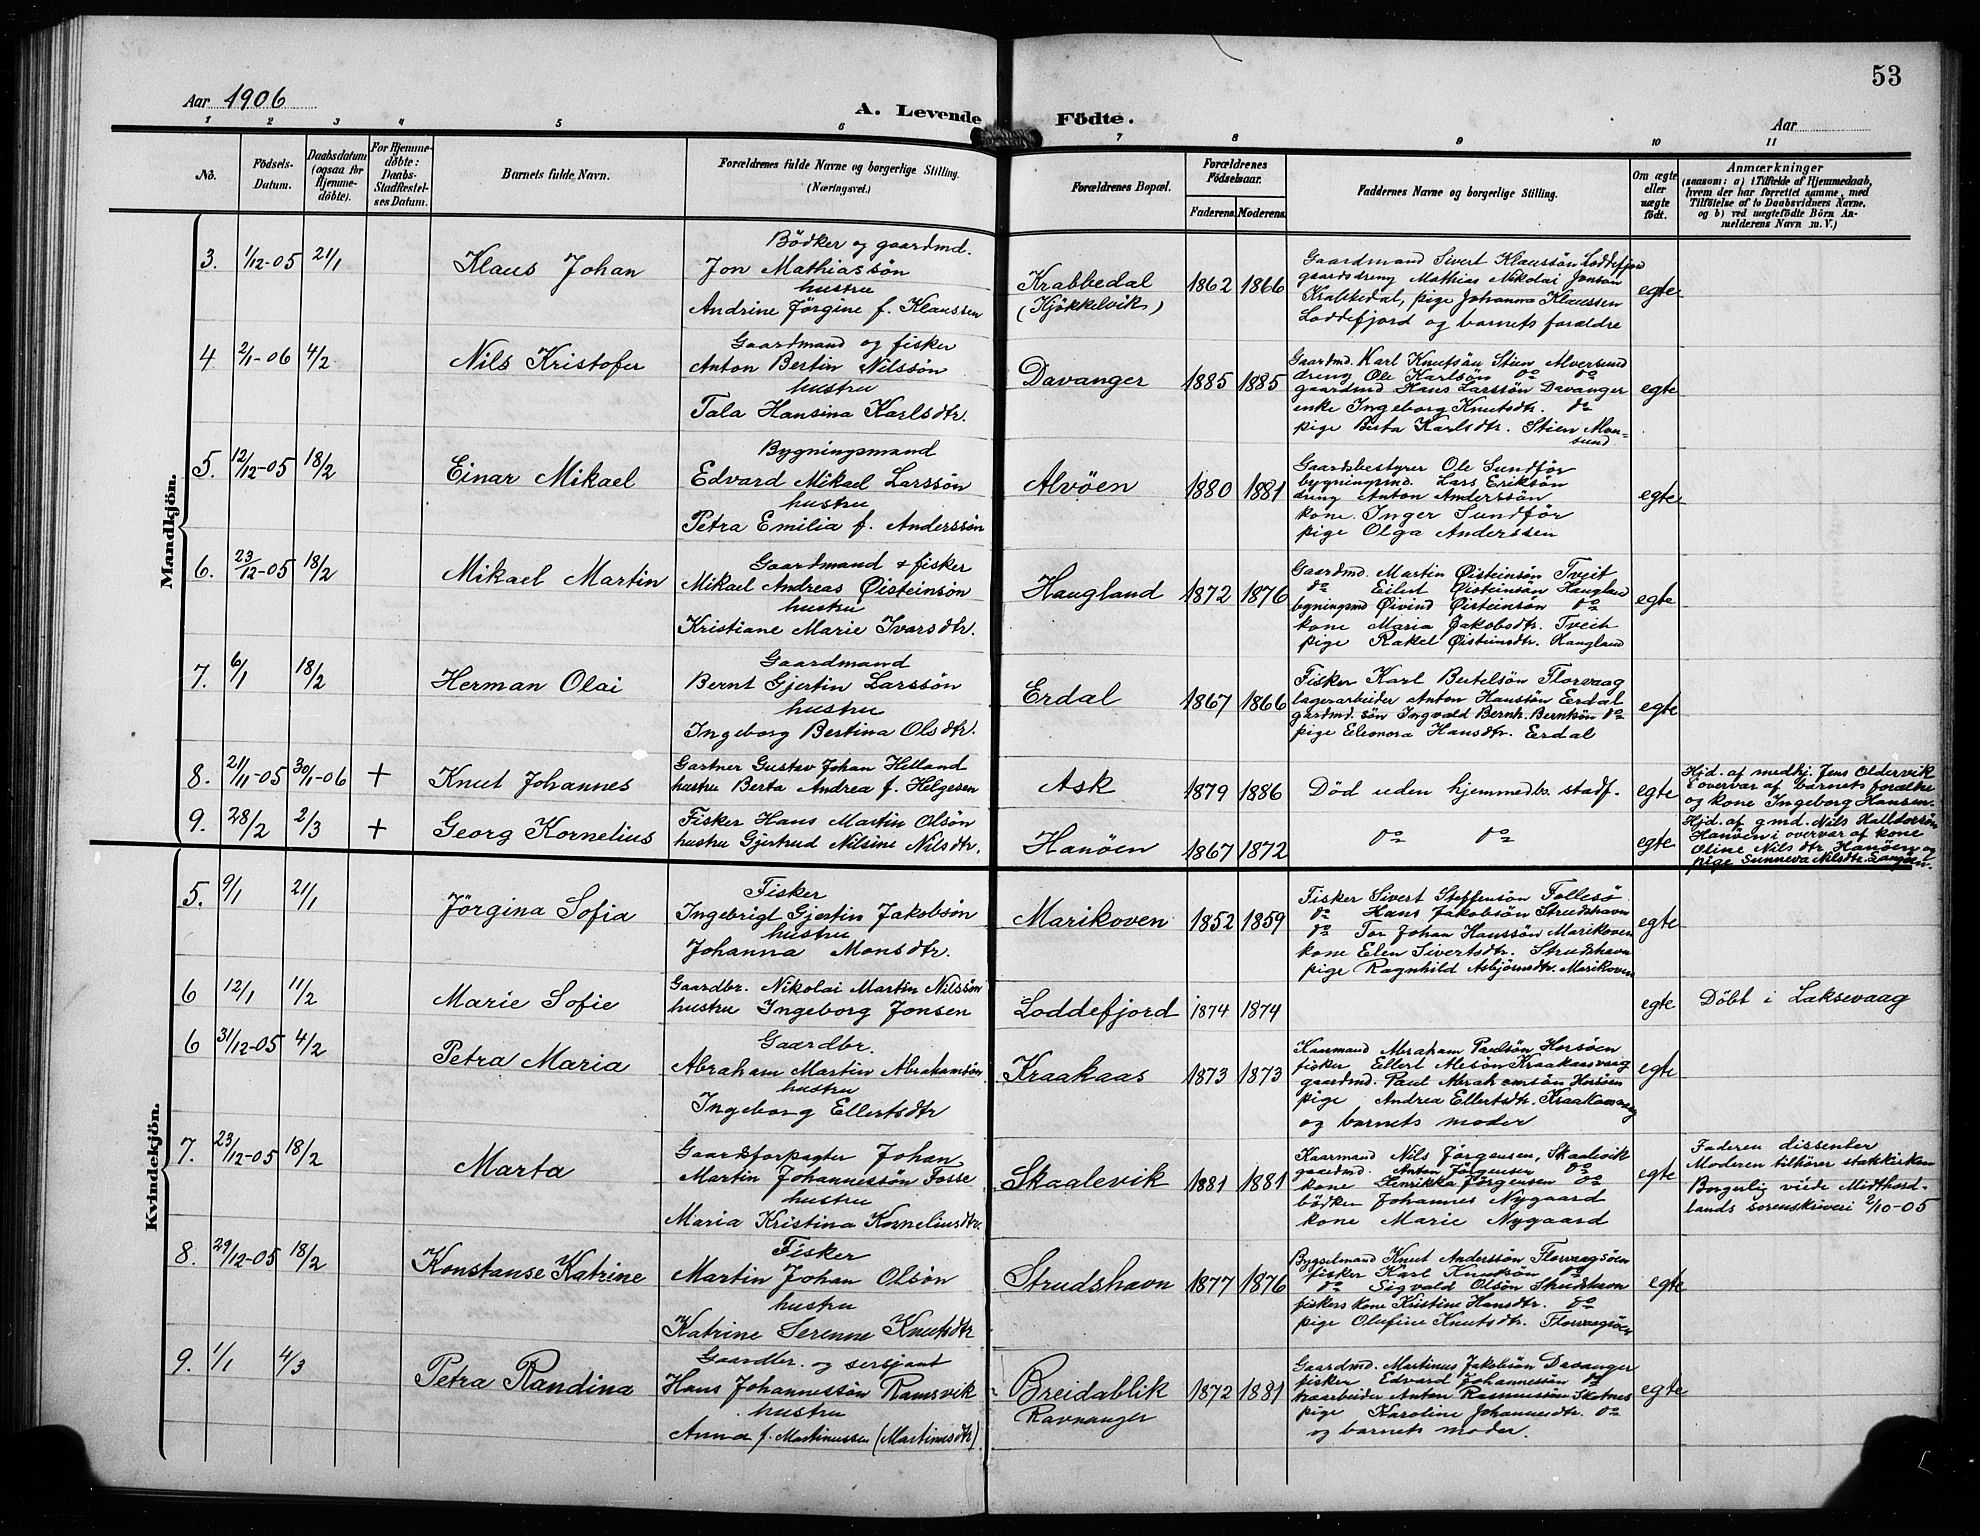 53
Aar 1906
A. Levende Födte.
Aar
1 2 3 4 5 6 7 8 9 10 11
No.
Födsels-Datum.
Daabsdatum (ogsaa for Hjemmedöbte).
For Hjemmedöbte: Daabs-Stadfæstelses Datum.
Barnets fulde Navn.
Forældrenes fulde Navne og borgerlige Stilling.
(Næringsvei.)
Forældrenes Bopæl.
Forældrenes Födselsaar.
Faderens. Moderens.
Faddernes Navne og borgerlige Stilling.
Om ægte eller uægte födt.
Anmærkninger
(saasom: a) i Tilfælde af Hjemmedaab, hvem der har forrettet samme, med Tilföielse af to Daabsvidners Navne, og b) ved uægtefödte Börn Anmelderens Navn m. V.)
Mandkjön.
3. 1/12-05 21/1 Klaus Johan
Bödker og gaardmd.
Jon Mathiassön
hustru
Andrine Jörgine f. Klaussen
Krabbedal
(Kjökkelvik)
1862 1866
Gaardmand Sivert Klaussön Loddefjord
gaardsdreng Mathias Nikolai Jonsön
Krabbedal, pige Johanna Klaussen
Loddefjord og barnets forældre
egte
4 2/1-06 4/2 Nils Kristofer
Gaardmand og fisker
Anton Bertin Nilssön
hustru
Tala Hansina Karlsdtr.
Davanger 1885 1885
Gaardmd. Karl Knutsön Stien Alversund
dreng Ole Karlsön do do
gaardmd Hans Larssön Davanger
enke Ingeborg Knutsdtr. do
pige Berta Karlsdtr. Stien Alver-
sund
egte
5. 12/12-05 18/2 Einar Mikael
Bygningsmand
Edvard Mikael Larssön
hustru
Petra Emilia f. Anderssön
Alvöen 1880 1881
Gaardsbestyrer Ole Sundför
bygningsmd. Lars Eriksön
dreng Anton Anderssön
kone Inger Sundför
pige Olga Anderssen
egte
6. 23/12-05 18/2 Mikael Martin
Gaardmand & fisker
Mikael Andreas Øisteinsön
hustru
Kristiane Marie Ivarsdtr.
Haugland 1872 1876
Gaardmd. Martin Øisteinsön Tveit
do Eilert Øisteinsön Haugland
bygningsmd Øivind Øisteinsön do
kone Maria Jakobsdtr. Tveit
pige Rakel Øisteinsdtr. Haugland
egte
7. 6/1 18/2 Herman Olai
Gaardmand
Bernt Gjertin Larssön
hustru
Ingeborg Bertina Olsdtr.
Erdal 1867 1866
Fisker Karl Bertelsön Florvaag
lagerarbeider Anton Hanssön Erdal
gardmd. sön Ingvald Bernh. Berntsön do
pige Eleonora Hansdtr. Erdal
egte
8. 21/11-05 30/1-06 + Knut Johannes
Gartner Gustav Johan Helland
hustru Berta Andrea f. Helgesen
Ask 1879 1886 Död uden hjemmedbs. stadf. egte
Hjd. af medhj. Jens Oldervik
i overvær af barnets forældre
og kone Ingeborg Hansen.
9. 28/2 2/3 + Georg Kornelius
Fisker Hans Martin Olsön
hustru Gjertrud Nilsine Nilsdtr.
Hanöen 1867 1872 do do egte
Hjd. af gmd. Nils Halldorsön
Hanöen i overvær af kone
Oline Nilsdtr Hanöen og
pige Sunneva Nilsdtr.
Kvindekjön.
5. 9/1 21/1 Jörgina Sofia
Fisker
Ingebrigt Gjertin Jakobsön
hustru
Johanna Monsdtr.
Marikoven 1852 1859
Fisker Sivert Steffensön Follesö
do Hans Jakobsön Strudshavn
do Tor Johan Hanssön Marikoven
kone Elen Sivertsdtr. Strudshavn
pige Ragnhild Asbjörnsdtr. Marikoven
egte
6 12/1 11/2 Marie Sofie
Gaardbr. Nikolai Martin Nilssön
hustru Ingeborg Jonsen
Loddefjord 1874 1874 egte Döbt i Laksevaag
6 31/12-05 4/2 Petra Maria
Gaardbr.
Abraham Martin Abrahamsön
hustru
Ingeborg Ellertsdtr
Kraakaas 1873 1873
Kaarmand Abraham Paulsön Horsöen
fisker Ellert Alesön Kraakaasvaag
gaardmd. Paul Abrahamsön Horsöen
pige Andrea Ellertsdtr. Kraakaasvaag
og barnets moder
egte
7. 23/12-05 18/2 Marta
Gaardsforpagter Johan
Martin Johannessön Fosse
hustru
Maria Kristina Korneliusdtr.
Skaalevik 1881 1881
Kaarmand Nils Jörgensen, Skaalevik
gaardmd. Anton Jörgensen do
kone Henrikka Jörgensen do
bödker Johannes Nygaard
kone Marie Nygaard
egte
Faderen dissenter
Moderen tilhörer statskirken
Borgerlig viede Midthord-
lands sorenskriveri 2/10-05
8. 29/12-05 18/2 Konstanse Katrine
Fisker
Martin Johan Olsön
hustru
Katrine Serenne Knutsdtr
Strudshavn 1877 1876
Bygselmand Knut Anderssön Florvaagsöen
fisker Karl Knutsön do
do Sigvald Olsön Strudshavn
fiskers kone Kristine Hansdtr. do
pige Olufine Knutsdtr. Florvaagsöen
egte
9. 1/1 4/3 Petra Randina
Gaardbr. og sersjant
Hans Johannessön Ramsvik
hustru
Anna f. Martinussen (Martinusdtr)
Breidablik
Ravnanger
1872 1881
Gaardmd. Martinus Jakobsön Davanger
fisker Edvard Johannessön do
Anton Rasmussön Skotnes
pige Karoline Johannesdtr. do
og barnets moder.
egte